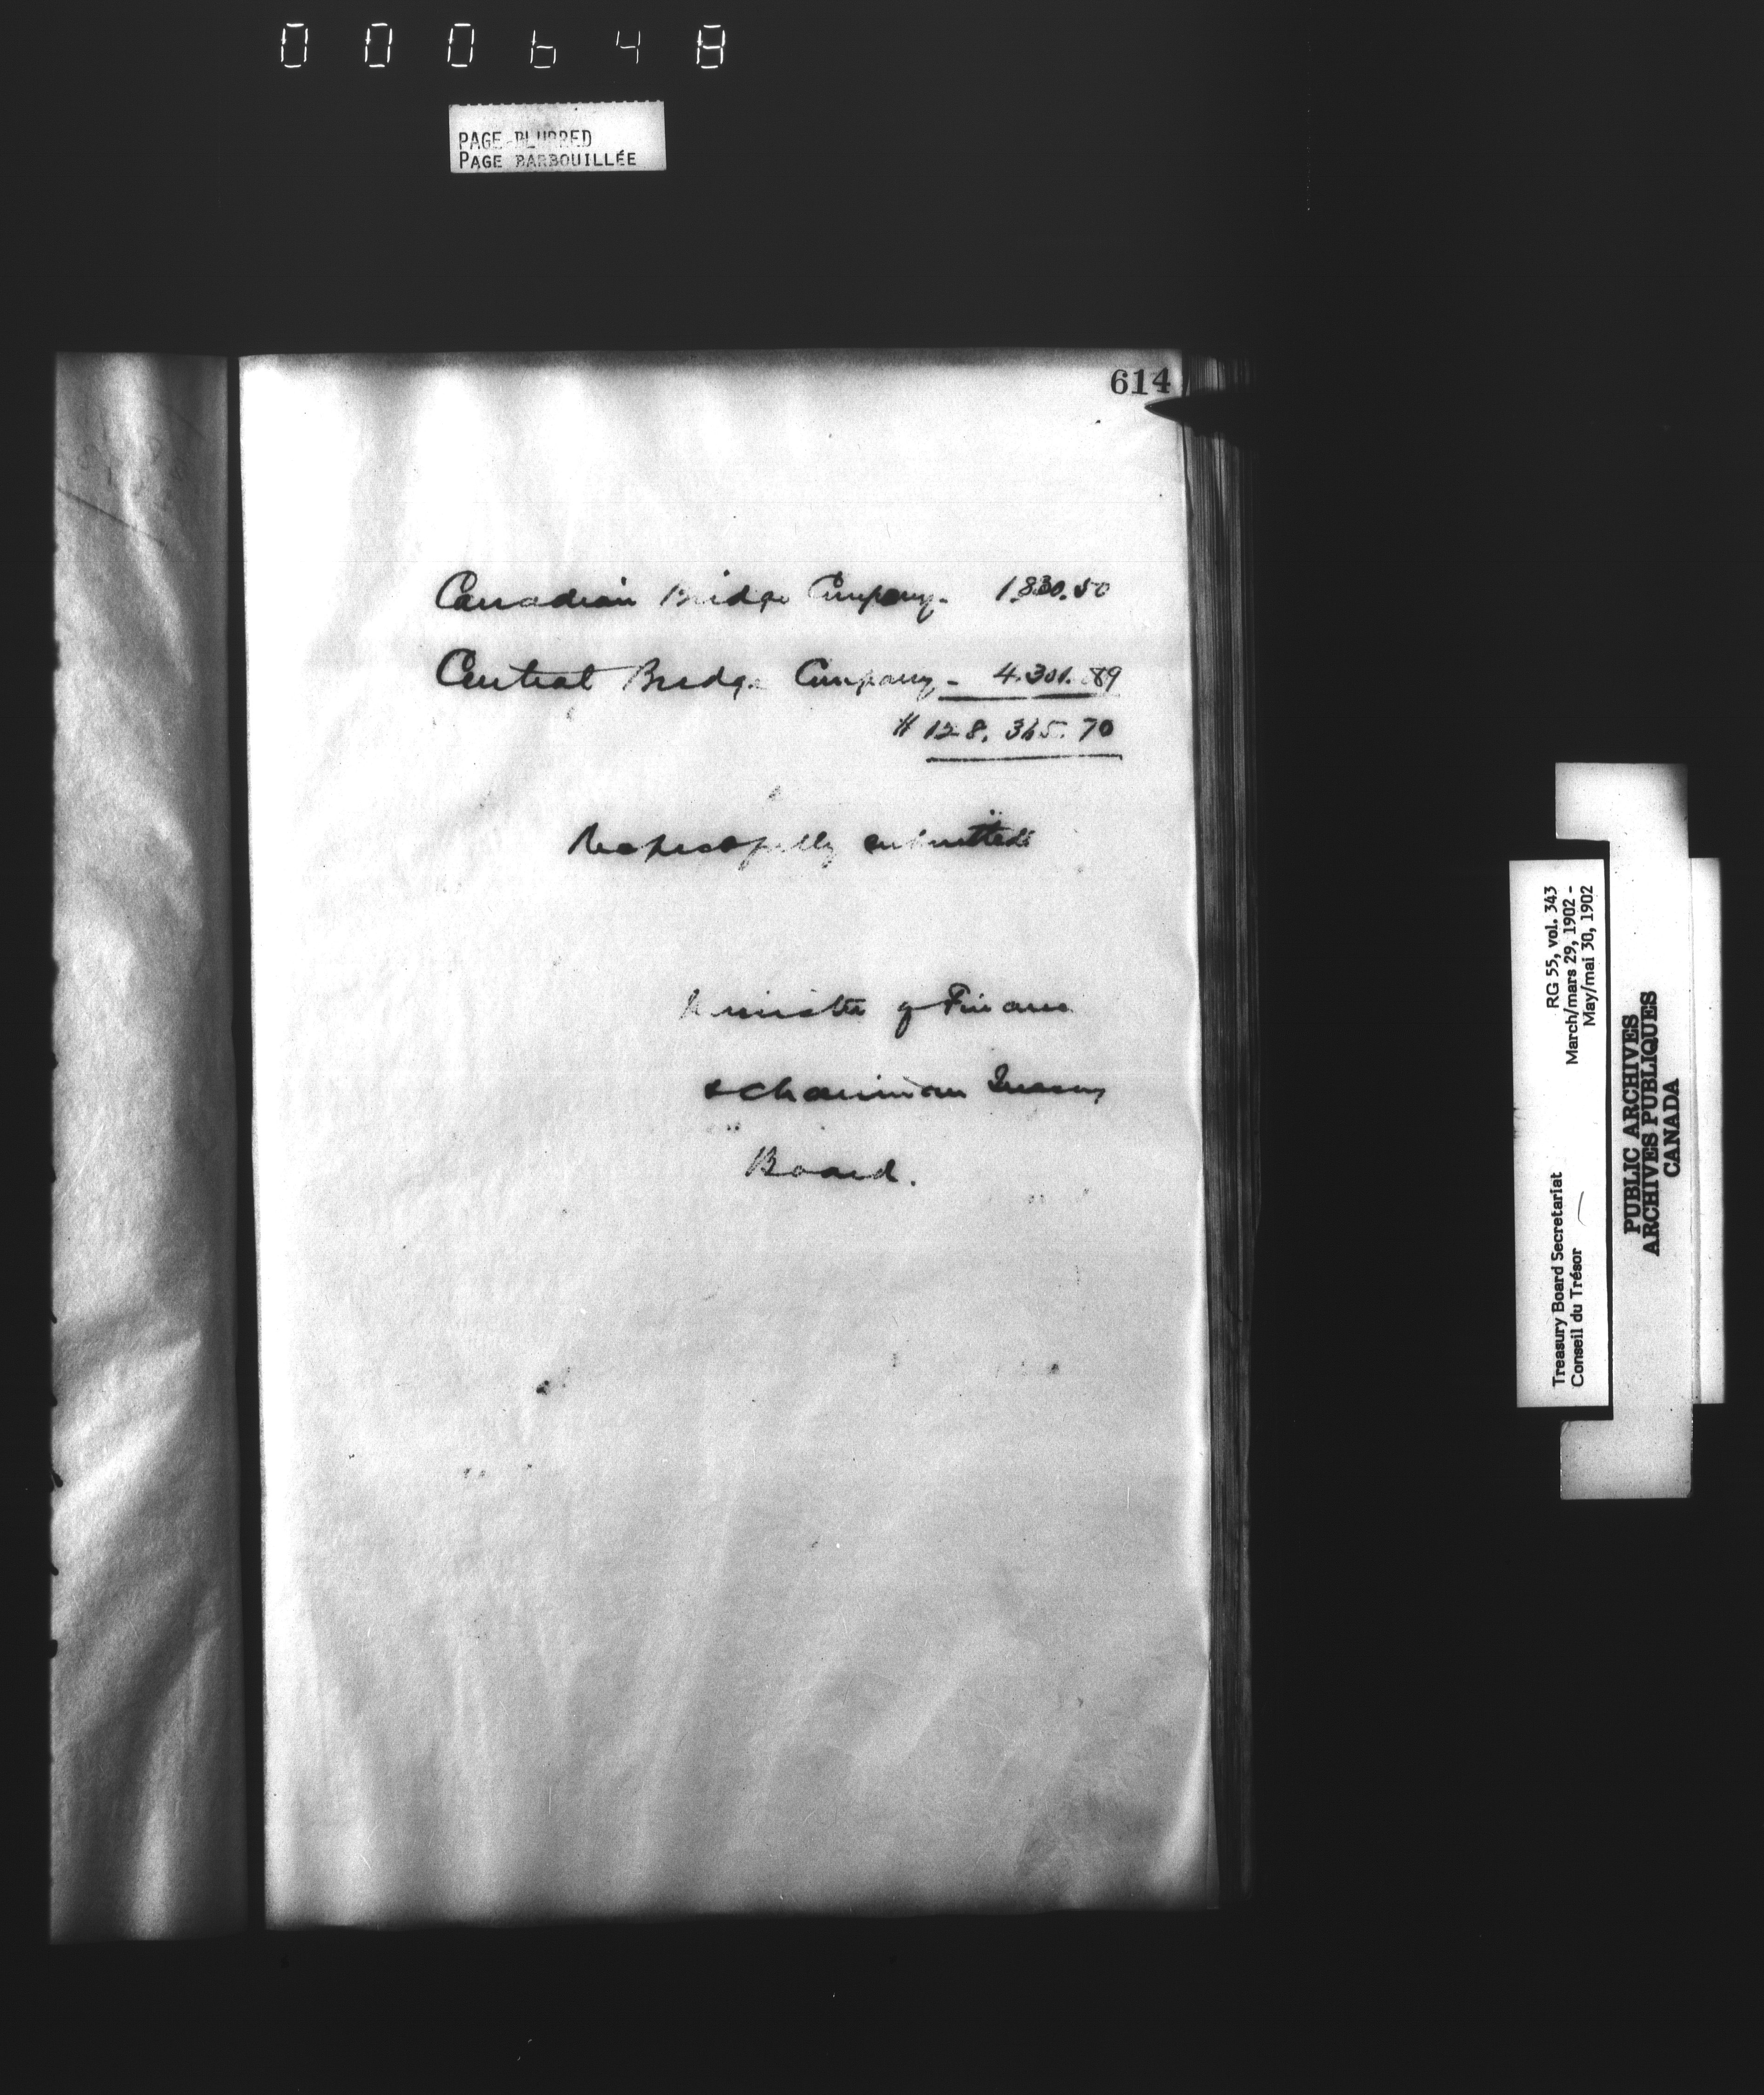 000648
PAGE BLURRED
PAGE BARBOUILLÉE
614
Canadian Bridge Company. 1,830.50
Central Bridge Company - 4,301.89
$128,365.70
Respectfully submitted
Minister of Finance
& Chairman Treasury
Board.
RG 55, vol. 343
March/mars 29, 1902 -
May/mai 30, 1902
Treasury Board Secretariat
Conseil du Trésor
PUBLIC ARCHIVES
ARCHIVES PUBLIQUES
CANADA